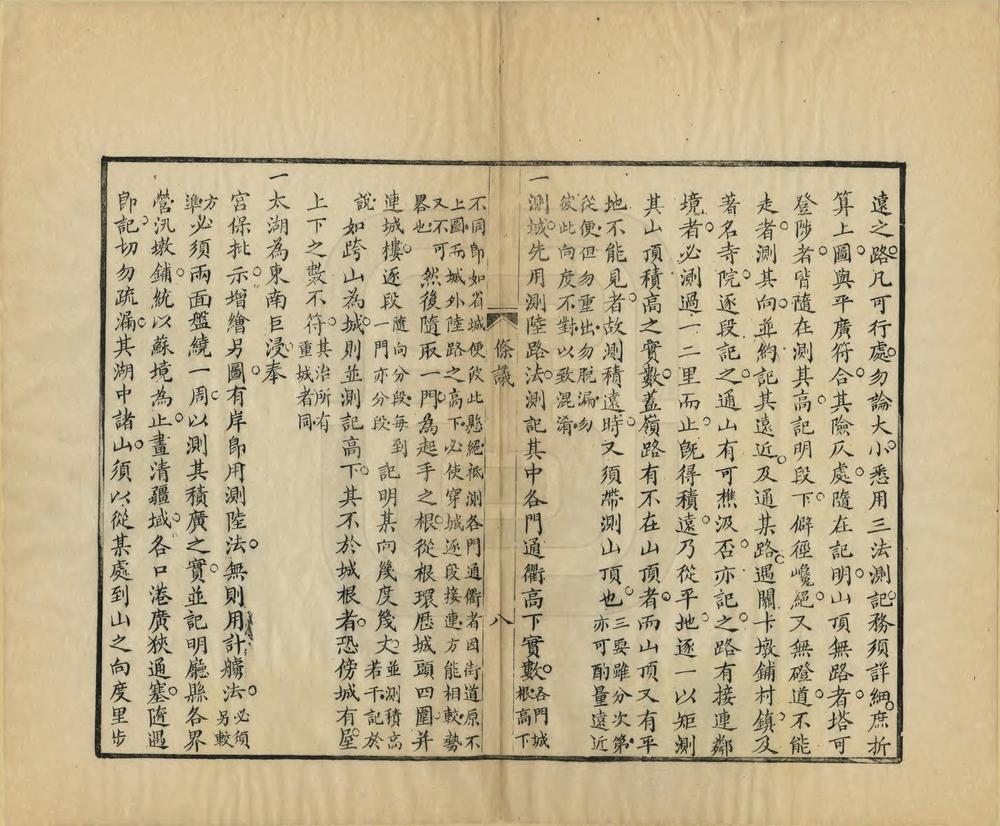 遠之路凡可行處勿論大小悉用三法測記務須詳細庶折
算上圖與平廣符合其險仄處隨在記明山頂無路者塔可
登陟者皆隨在測其高記明段下僻徑巉絕又無磴道不能
走者測其向並約記其遠近及通某路遇關卡墩鋪村鎮及
著名寺院逐段記之通山有可樵汲否亦記之路有接連鄰
境者必測過一二里而止旣得積遠乃從平地逐一以矩測
其山頂積高之實數蓋嶺路有不在山頂者而山頂又有平
地不能見者故測積遠時又須帶測山頂也三要雖分次第亦可酌量遠近
從便但勿重出勿脫漏勿彼此向度不對以致混淆
一測城先用測陸路法測記其中各門通衢高下實數各門城根高下
條議
八
不同卽如省城便彼此懸絕祇測各門通衢者因街道原不上圖而城外陸路之高下必使穿城逐段接連方能相較勢
又不可畧也然後隨取一門為起手之根從根環歷城頭四圍并
連城樓逐段隨向分段每到一門亦分段記明其向幾度幾丈並測積高若干記於
說如跨山為城則並測記高下其不於城根者恐傍城有屋
上下之數不符其治所有重城者同
一太湖為東南巨浸奉
宮保批示增繪另圖有岸卽用測陸法無則用計艫法必須另較
方準必須兩面盤繞一周以測其積廣之實並記明廳縣各界
營汛墩鋪統以蘇境為止畫清疆域各口港廣狹通塞隨遇
卽記切勿疏漏其湖中諸山須以從某處到山之向度里步